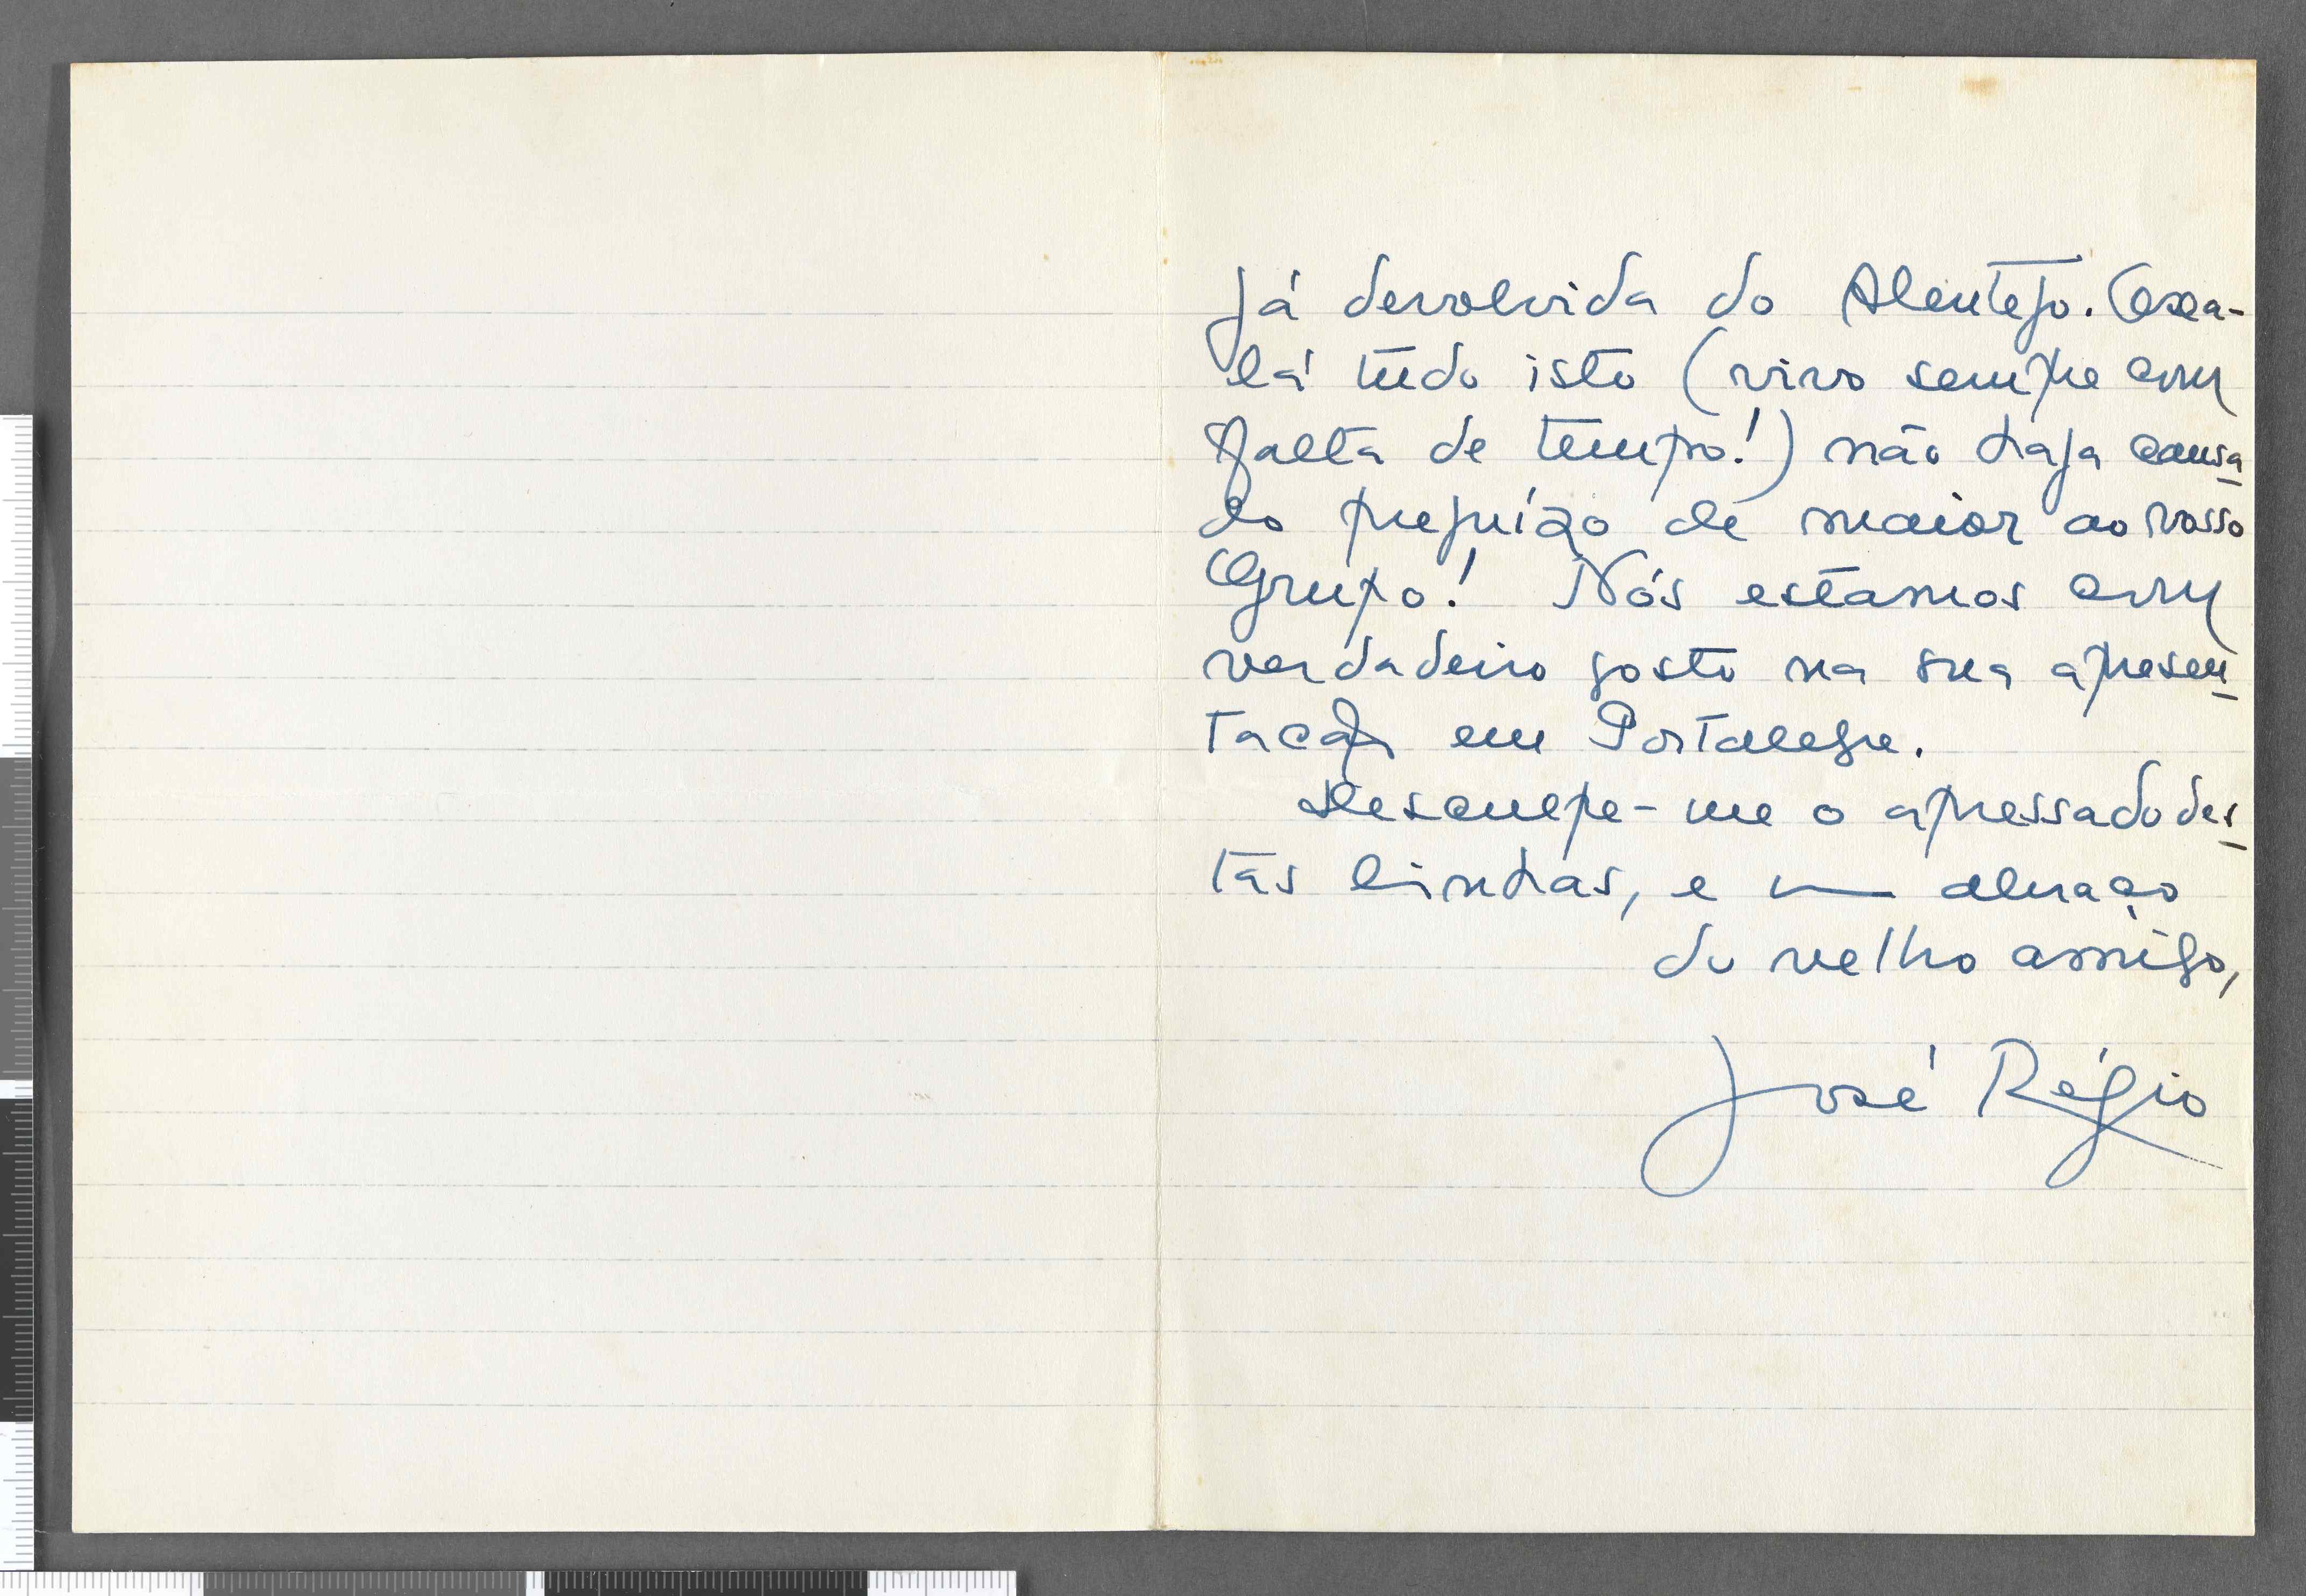 já devolvida do Alentejo. Oxa-
lá tudo isto (vivo sempre com
falta de tempo!) não haja causa-
do prejuízo de maior ao vosso
Grupo! Nós estamos com
verdadeiro gosto na sua apresen-
tação em Portalegre.
Desculpe-me o apressado des-
tas linhas, e um abraço
do velho amigo,
José Régio